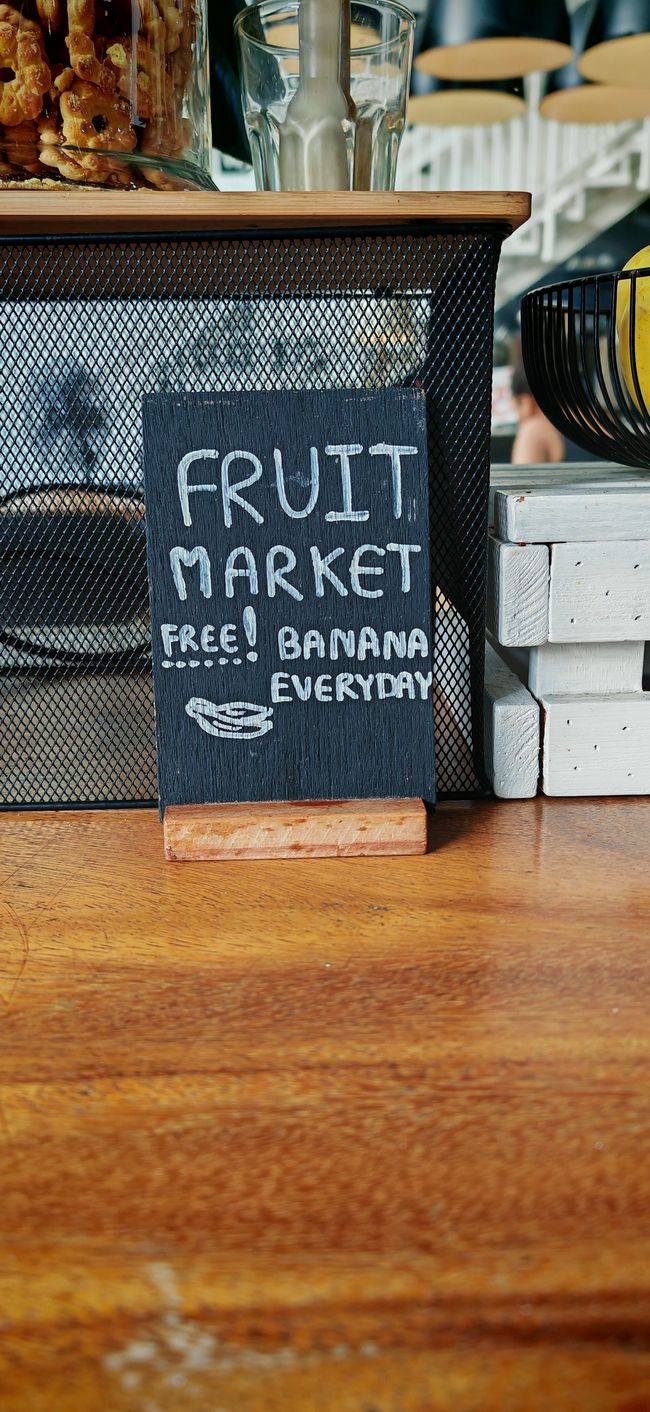 FRUIT
MARKET
FREE! BANANA
EVERYDAY